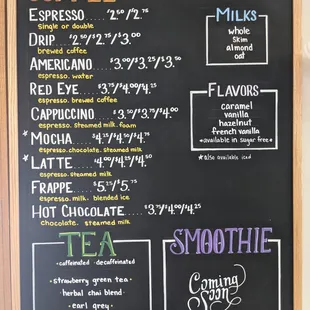 ESPRESSO......$2.50/$2.75
single or double
DRIP...$2.50/$2.75/$3.00
brewed coffee
AMERICANO....$3.00/$3.25/$3.50
espresso. water
RED EYE.....$3.75/$4.00/$4.25
espresso. brewed coffee
CAPPUCCINO....$3.50/$3.75/$4.00
espresso. steamed milk. foam
*MOCHA......$4.25/$4.50/$4.75
espresso. chocolate. steamed milk
*LATTE......$4.00/$4.25/$4.50
espresso. steamed milk
FRAPPE......$5.25/$5.75
espresso. milk. blended ice
HOT CHOCOLATE...$3.75/$4.00/$4.25
chocolate. steamed milk
MILKS
whole
skim
almond
oat
FLAVORS
caramel
vanilla
hazelnut
french vanilla
*available in sugar free*
*also available iced
TEA
•caffeinated •decaffeinated
• strawberry green tea •
• herbal chai blend •
• earl grey •
SMOOTHIE
Coming
Soon